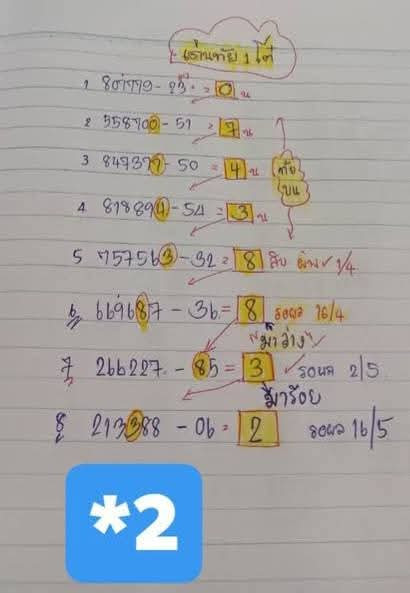 แก่นทัย 1 โต้
1 807779 - 23 = 0 น
2 558700 - 51 = 7 น
3 847377 - 50 = 4 น
ทัย
บน
4 818894 - 54 = 3 น
5 757563 - 32 = 8 สิบ ผ่าน 1/4
6 669687 - 36 = 8 รอผล 16/4
"ม้าว่าง"
7 266227 - 85 = 3 รอผล 2/5
มีมาร้อย
8 213388 - 06 = 2 รอผล 16/5
*2